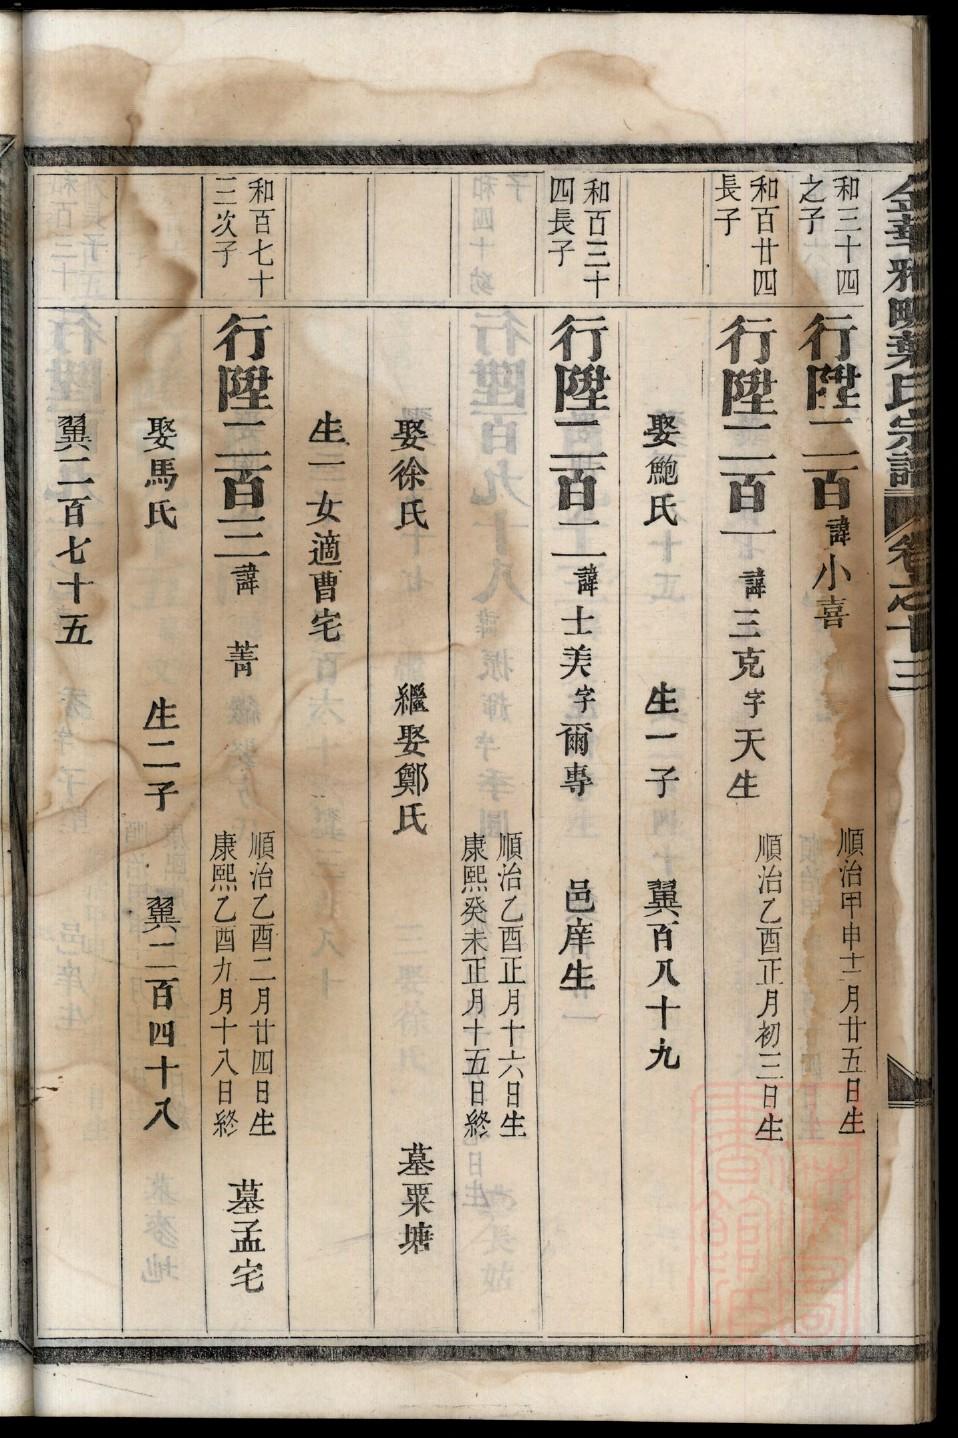 金華雅畈葉氏宗譜 卷之十三
和三十四之子
行陞二百 諱小喜 順治甲申十二月廿五日生
和百廿四長子
行陞二百一 諱三克 字天生 順治乙酉正月初三日生
娶鮑氏 生一子 翼百八十九
和百三十四長子
行陞二百二 諱士美 字爾專 邑庠生
順治乙酉正月十六日生
康熙癸未正月十五日終
娶徐氏 繼娶鄭氏 墓粟塘
生一女適曹宅
和百七十三次子
行陞二百三 諱菁
順治乙酉二月廿四日生
康熙乙酉九月十八日終
墓孟宅
娶馬氏 生二子 翼二百四十八
翼二百七十五